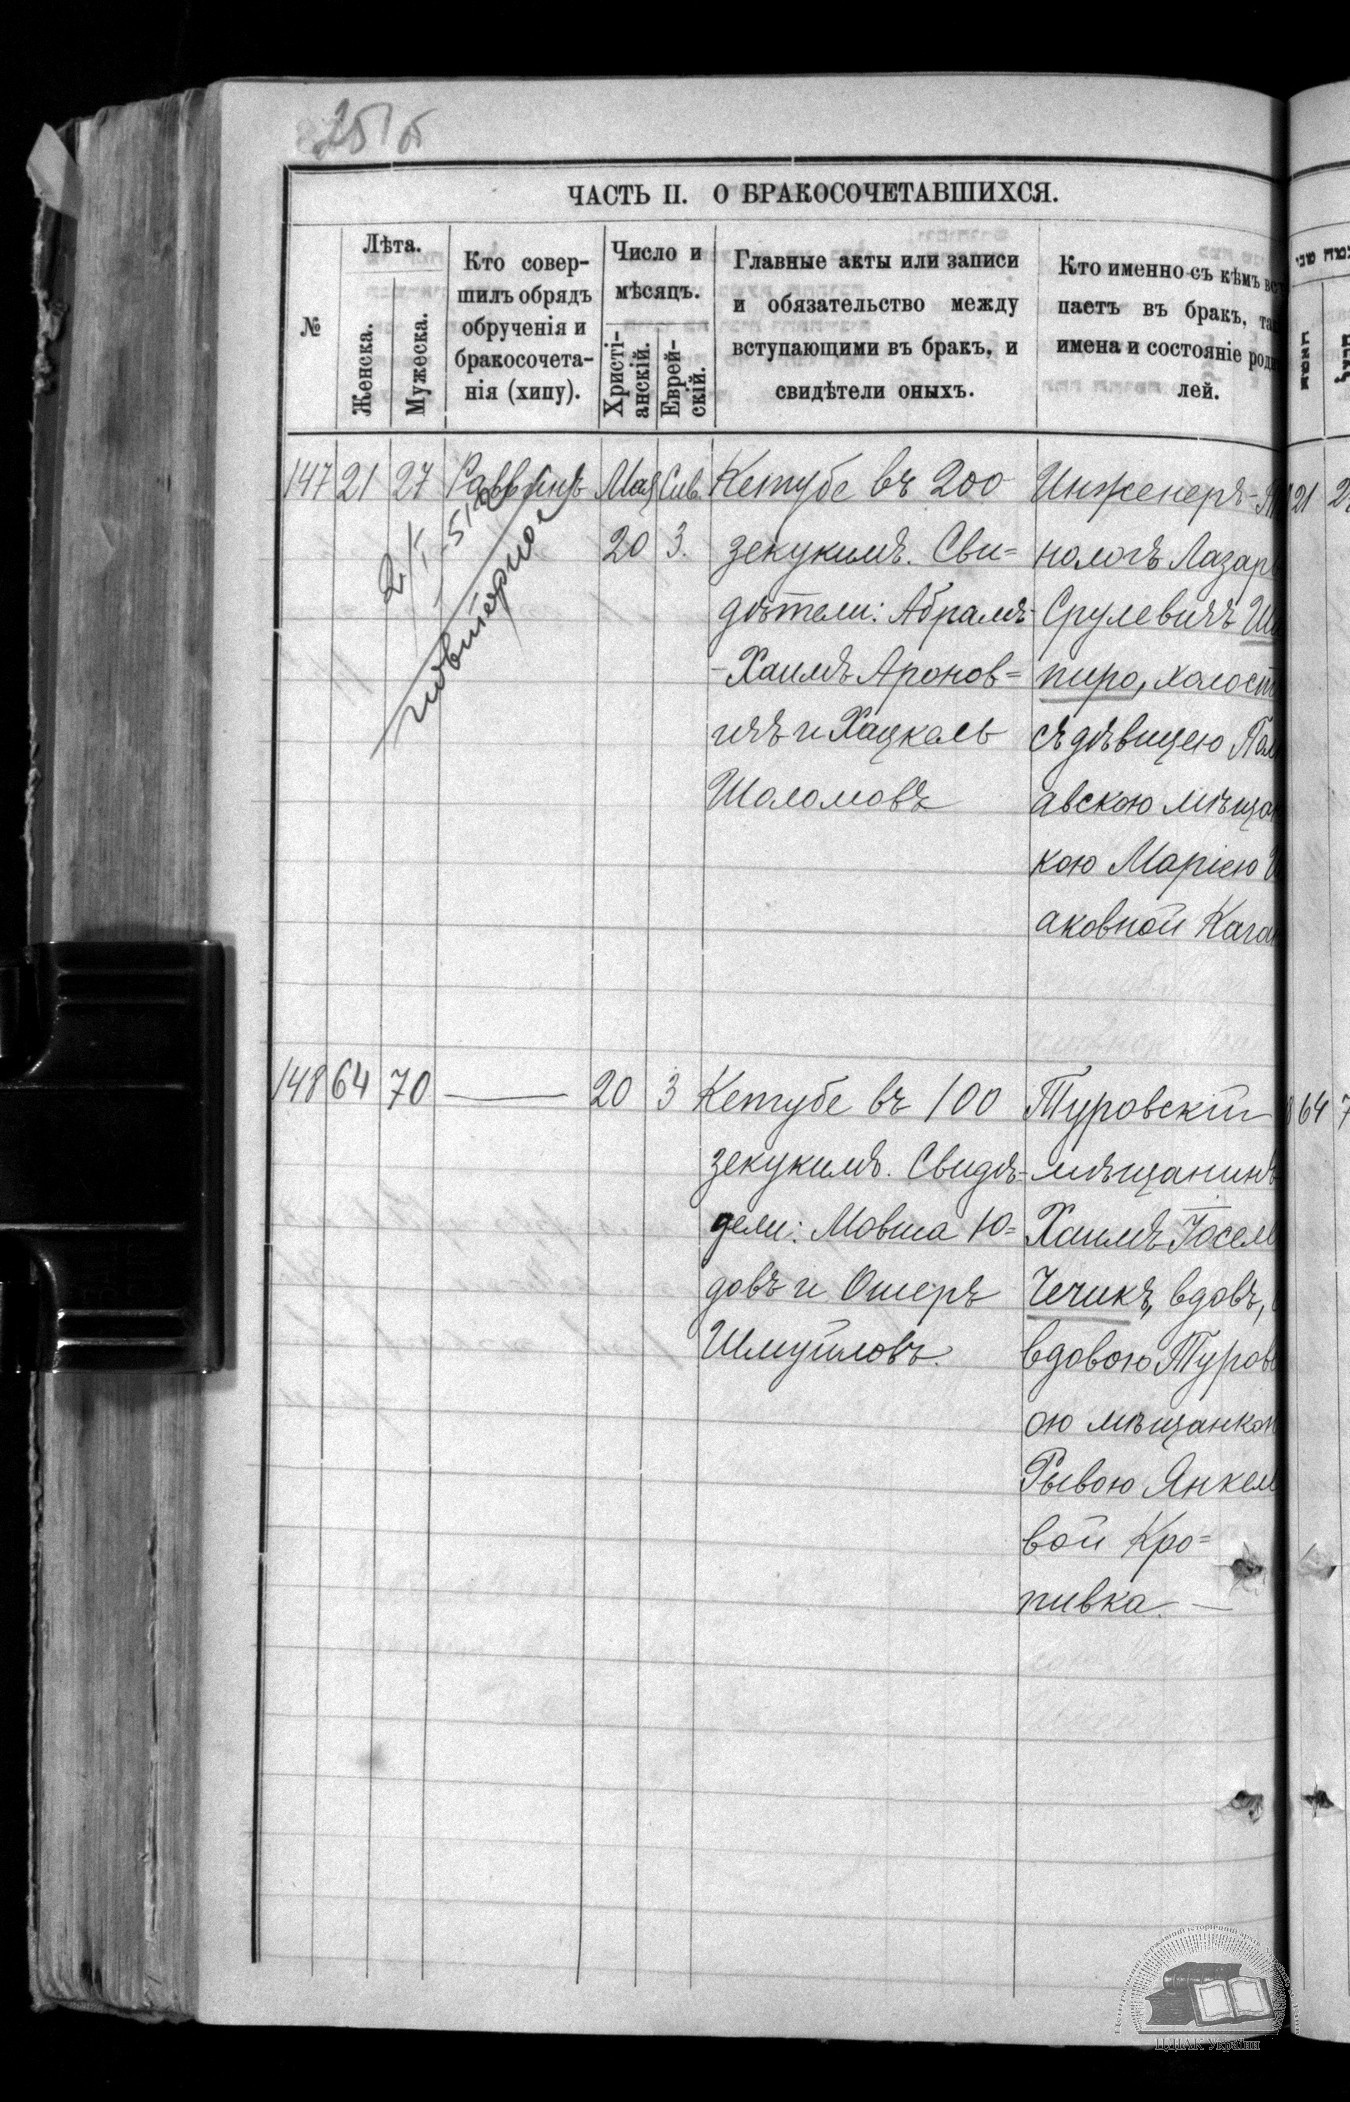 251 об
ЧАСТЬ II. О БРАКОСОЧЕТАВШИХСЯ.
№
Лѣта.
Женска.
Мужеска.
Кто совер-
шилъ обрядъ
обрученія и
бракосочета-
нія (хипу).
Число и
мѣсяцъ.
Христі-
анскій.
Еврей-
скій.
Главные акты или записи
и обязательство между
вступающими въ бракъ, и
свидѣтели оныхъ.
Кто именно съ кѣмъ вст
паетъ въ бракъ, так
имена и состояніе роди
лей.
147 21 27 Раввинъ Мая Сив.
20 3.
2/I 51 г
повиторно
Кетубе въ 200
зекукимъ. Сви=
дѣтели: Абрамъ-
-Хаимъ Аронов=
ичъ и Хацкель
Шоломовъ
Инженеръ-Т
нологъ Лазарь
Срулевичъ Ша
пиро, холост
съ дѣвицею Пол
авскою мѣщан
кою Маріею И
аковной Каган
21 2
148 64 70 — 20 3
Кетубе въ 100
зекукимъ. Свидѣ-
дели: Мовша Ю=
довъ и Ошеръ
Шмуйловъ.
Туровскій
мѣщанинъ
Хаимъ Іосел
Чечикъ, вдовъ,
вдовою Туровс
ою мѣщанкою
Рывою Янкеле
вой Кро=
пивка. —
8 64 7
ЦДІАК України